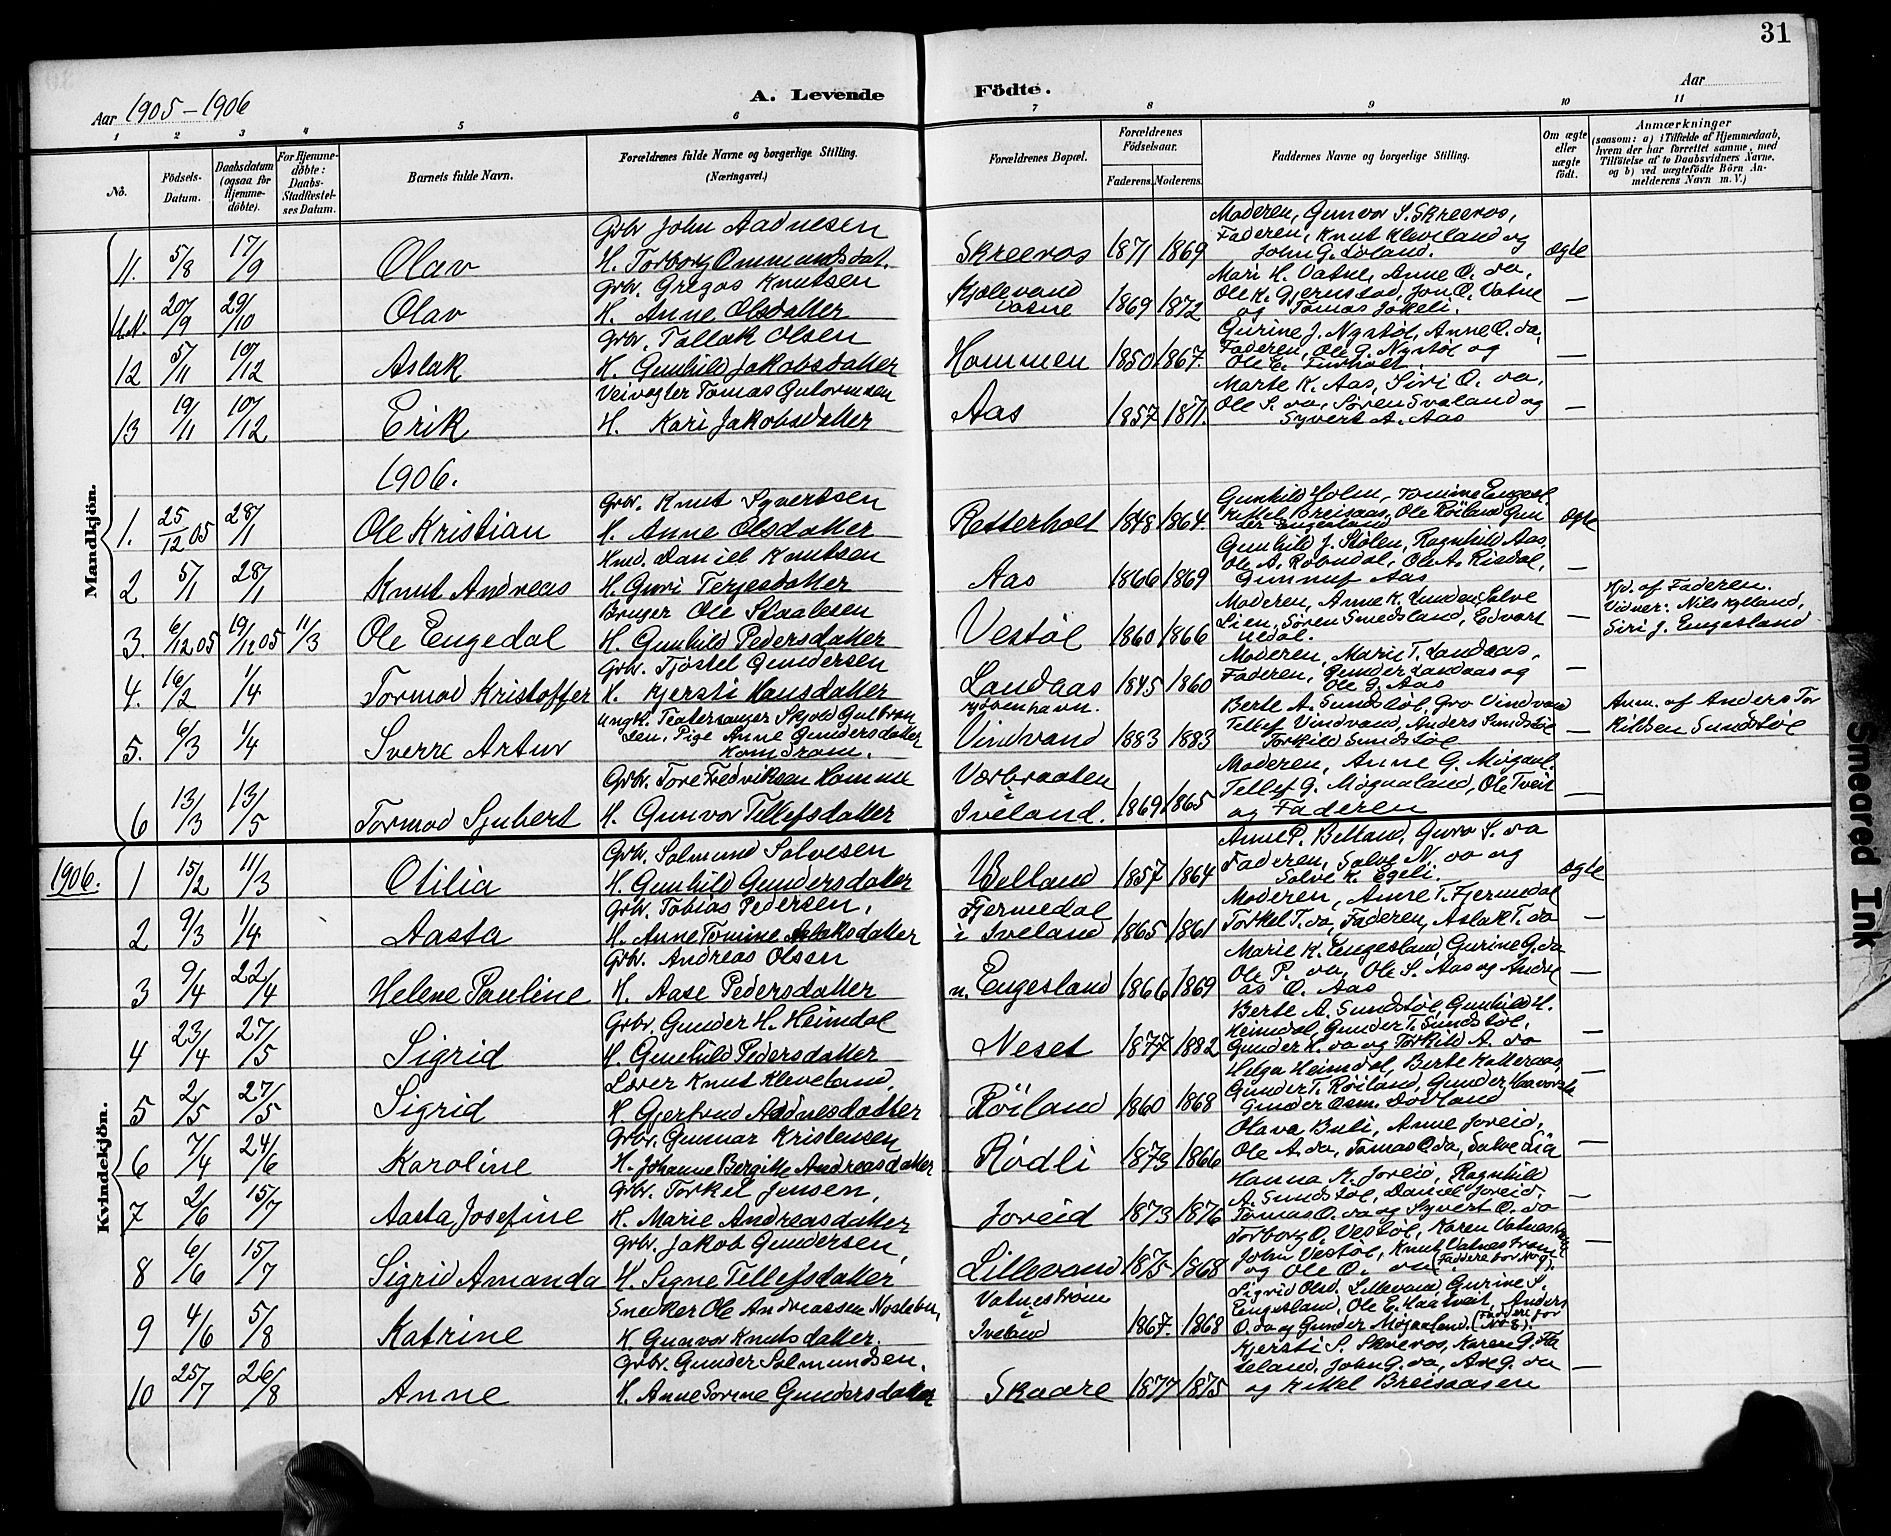 31
Aar 1905-1906
A. Levende Födte.
Aar
1 2 3 4 5 6 7 8 9 10 11
No.
Födsels-Datum.
Daabsdatum (ogsaa for Hjemme-döbte).
For Hjemme-döbte: Daabs-Stadfæstel-ses Datum.
Barnets fulde Navn.
Forældrenes fulde Navne og borgerlige Stilling. (Næringsvei.)
Forældrenes Bopæl.
Forældrenes Födselsaar.
Faderens. Moderens.
Faddernes Navne og borgerlige Stilling.
Om ægte eller uægte födt.
Anmærkninger
(saasom: a) i Tilfælde af Hjemmedaab, hvem der har forrettet samme, med Tilföielse af to Daabsvidners Navne, og b) ved uægtefödte Börn An-melderens Navn m. V.)
Mandkjön.
11. 5/8 17/9 Olav
Grbr John Aadnesen
H. Torborg Ommundsdat.
Skreeros 1871 1869
Moderen, Gunvor S. Skreeros,
Faderen, Knut Kleveland og
John G. Løland.
ægte
20/9 29/10 Olav
Grbr. Gregas Knutsen
H. Anne Olsdatter
Kjolevand
1869 1872
Mari H. Vatne, Anne O. do,
Ole K. Gjernstad, Jon O. Vatne
og Tomas Jøkeli.
—
12 5/11 10/12 Aslak
Grbr. Tallak Olsen
H. Gunhild Jakobsdatter
Hommen 1850 1867.
Gurine J. Nystøl, Anne O. do,
Faderen, Ole G. Nystøl og
Ole E. Furholt.
—
13 19/11 10/12 Erik
Veivogter Tomas Gutormsen
H. Kari Jakobsdatter
Aas 1857 1871.
Marte K. Aas, Siri O. do,
Ole S. do, Søren Svaland og
Syvert A. Aas
—
1906.
1. 25/12 05 28/1 Ole Kristian
Grbr. Knut Syvertsen
H. Anne Olsdatter
Retterholt 1848 1864.
Gunhild Holm, Tomine Engesl.
Kittel Breisaas, Ole Røiland Gun
der Engesland
ægte
2 5/1 28/1 Knut Andreas
Hmd. Daniel Knutsen
H. Guri Terjesdatter
Aas 1866 1869
Gunhild J. Stølen, Ragnhild Aas,
Ole A. Robndal, Ole A. Risdal,
Gunnuf Aas
—
3. 6/12 05 19/12 05 11/3 Ole Engedal
Bruger Ole Staalesen
H. Gunhild Pedersdatter
Vestøl 1860 1866
Moderen, Anne K. Lunden, Salve
Lien, Søren Smedsland, Edvart
Uedal.
—
Hjd. af Faderen.
Vidner: Nils Kylland,
Siri J. Engesland
4. 16/2 1/4 Tormod Kristoffer
Grbr. Tjøstel Gundersen
H. Kjersti Hansdatter
Landaas 1845 1860
Moderen, Marie T. Landaas,
Faderen, Gunder Landaas og
Ole G. Aas
—
5. 6/3 1/4 Sverre Artur
Ungk. Teatersanger Skjold Gulbran
sen. Pige Anne Gundersdatter
Komdrom.
Kjøbenhavn.
Vindvand 1883 1883
Berte A. Sundstøl, Gro Vindvand
Tellef Vindvand, Anders Sundstøl
Torkild Sundstøl
—
Anm. af Anders Tor
kildsen Sundstøl
6 13/3 13/5 Tormod Sjubert
Grbr. Tore Fredriksen Homme
H. Gunvor Tellefsdatter
Værbraaten
i
Iveland. 1869. 1865
Moderen, Anne G. Møgdal.
Tellef G. Møgaaland, Ole Tveit
og Faderen
—
1906.
Kvindekjön.
1 15/2 11/3 Otilia
Grbr. Salmund Salvesen
H. Gunhild Gundersdatter
Belland 1857 1864
Anne P. Belland, Guro S. do
Faderen, Salve N. do og
Salve K. Egeli.
ægte
2 9/3 1/4 Aasta
Grbr. Tobias Pedersen,
H. Anne Tomine Aslaksdatter
Fjermedal
i Iveland 1865 1861
Moderen, Anne T. Fjermedal
Torkel T. do, Faderen, Aslak T. do
—
3 9/4 22/4 Helene Pauline
Grbr. Andreas Olsen
H. Aase Pedersdatter
n. Engesland 1866 1869
Marie K. Engesland, Gurine G. do
Ole P. do, Ole S. Aas og Andre
as O. Aas
—
4 23/4 27/5 Sigrid
Grbr. Gunder H. Heimdal
H. Gunhild Pedersdatter
Neset 1877 1882
Berte A. Sundstøl, Gunhild H.
Heimdal, Gunder T. Sundstøl,
Gunder H. do og Torkild A. do
—
5 2/5 27/5 Sigrid
Lærer Knut Kleveland,
H. Gjertrud Aadnesdatter
Røiland 1860 1868
Helga Heimdal, Berte Katteraas,
Gunder T. Røiland, Gunder Haavorsta
Gunder Osm. Dovland
—
6 7/4 24/6 Karoline
Grbr. Gunnar Kristensen
H. Johanne Bergitte Andreasdatter
Rødli 1873 1866
Olava Buli, Anne Joreid,
Ole A. do, Tomas O. do, Salve Lia
—
7 2/6 15/7 Aasta Josefine
Grbr. Torkel Jensen,
H. Marie Andreasdatter
Joreid 1873 1876
Hanna K. Joreid, Ragnhild
A. Sundstøl, Daniel Joreid,
Tomas O. do og Syvert O. do
—
8 6/6 15/7 Sigrid Amanda
Grbr. Jakob Gundersen,
H. Signe Tellefsdatter
Lillevand 1875 1868
Torborg O. Vestøl, Karen Vatnestrøm
John Vestøl, Knut Vatnestrøm
og Ole O. do (Faddere for No 9).
—
9 4/6 5/8 Katrine
Snedker Ole Andreassen Nosleber,
H. Gunvor Knutsdatter.
Vatnestrøm
i
Iveland 1867. 1868
Sigrid Olsd. Lillevand, Gurine S.
Engesland, Ole E. Haatveit, Anders
O. do og Gunder Møgaaland. (Faddere for No 8).
10 25/7 26/8 Anne
Grbr. Gunder Salmundsen,
H. Anne Sorine Gundersdatter
Skaare 1877 1875
Kjersti S. Skreros, Karen G. Fla
teland, John G. do, Ave G. do
og Kittel Breisaasen
—
Smeared Ink